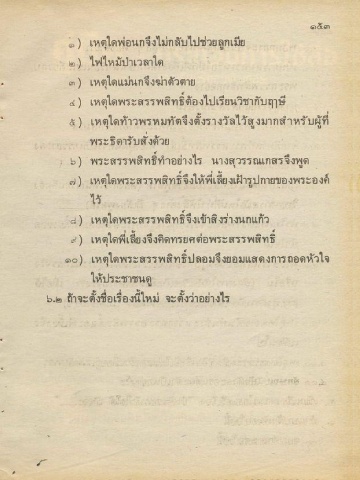 ๑๕๓
๑) เหตุใดพ่อนกจึงไม่กลับไปช่วยลูกเมีย
๒) ไฟไหม้ป่าเวลาใด
๓) เหตุใดแม่นกจึงฆ่าตัวตาย
๔) เหตุใดพระสรรพสิทธิ์ต้องไปเรียนวิชากับฤาษี
๕) เหตุใดท้าวพรหมทัตจึงตั้งรางวัลไว้สูงมากสำหรับผู้ที่
พระธิดารับสั่งด้วย
๖) พระสรรพสิทธิ์ทำอย่างไร นางสุวรรณเกสรจึงพูด
๗) เหตุใดพระสรรพสิทธิ์จึงให้พี่เลี้ยงเฝ้ารูปกายของพระองค์
ไว้
๘) เหตุใดพระสรรพสิทธิ์จึงเข้าสิงร่างนกแก้ว
๙) เหตุใดพี่เลี้ยงจึงคิดทรยศต่อพระสรรพสิทธิ์
๑๐) เหตุใดพระสรรพสิทธิ์ปลอมจึงยอมแสดงการถอดหัวใจ
ให้ประชาชนดู
๖.๒ ถ้าจะตั้งชื่อเรื่องนี้ใหม่ จะตั้งว่าอย่างไร